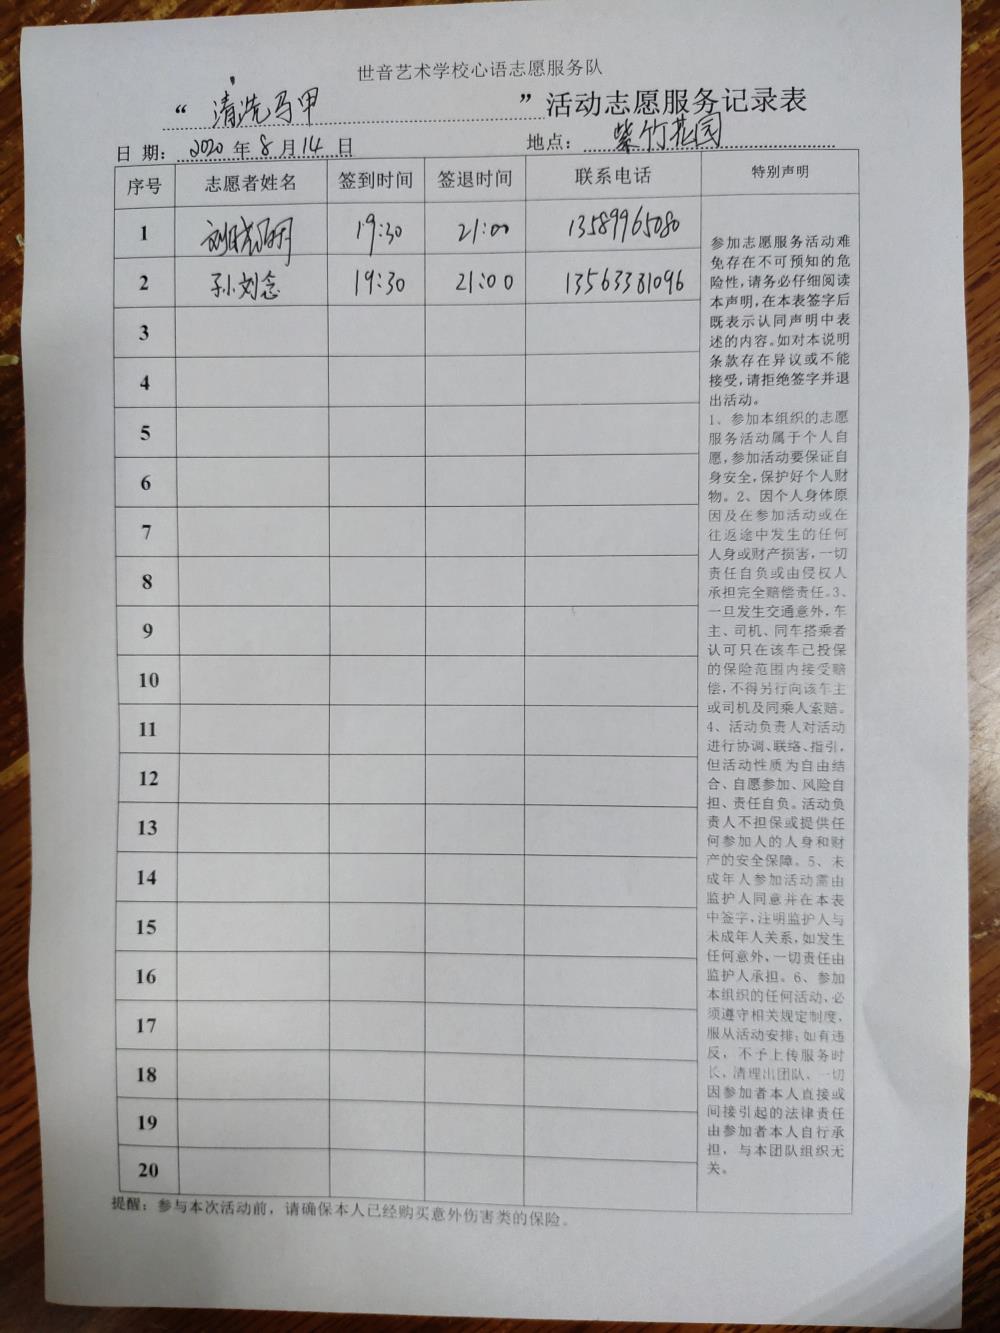 世音艺术学校心语志愿服务队
“清洗马甲”活动志愿服务记录表
日 期: 2020 年 8 月 14 日 地点: 紫竹花园
序号 志愿者姓名 签到时间 签退时间 联系电话 特别声明
1 19:30 21:00 13589965080
2 孙刘念 19:30 21:00 13563381096
3
4
5
6
7
8
9
10
11
12
13
14
15
16
17
18
19
20
参加志愿服务活动难
免存在不可预知的危
险性,请务必仔细阅读
本声明,在本表签字后
既表示认同声明中表
述的内容。如对本说明
条款存在异议或不能
接受,请拒绝签字并退
出活动。
1、参加本组织的志愿
服务活动属于个人自
愿,参加活动要保证自
身安全,保护好个人财
物。2、因个人身体原
因及在参加活动或在
往返途中发生的任何
人身或财产损害,一切
责任自负或由侵权人
承担完全赔偿责任。3、
一旦发生交通意外,车
主、司机、同车搭乘者
认可只在该车已投保
的保险范围内接受赔
偿,不得另行向该车主
或司机及同乘人索赔。
4、活动负责人对活动
进行协调、联络、指引,
但活动性质为自由结
合、自愿参加、风险自
担、责任自负。活动负
责人不担保或提供任
何参加人的人身和财
产的安全保障。5、未
成年人参加活动需由
监护人同意并在本表
中签字,注明监护人与
未成年人关系,如发生
任何意外,一切责任由
监护人承担。6、参加
本组织的任何活动,必
须遵守相关规定制度,
服从活动安排;如有违
反,不予上传服务时
长,清理出团队、一切
因参加者本人直接或
间接引起的法律责任
由参加者本人自行承
担,与本团队组织无
关。
提醒:参与本次活动前,请确保本人已经购买意外伤害类的保险。